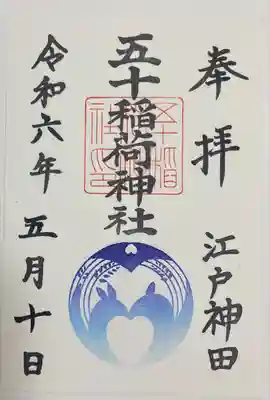 奉拝
江戸神田
五十稲荷神社
令和六年 五月十日